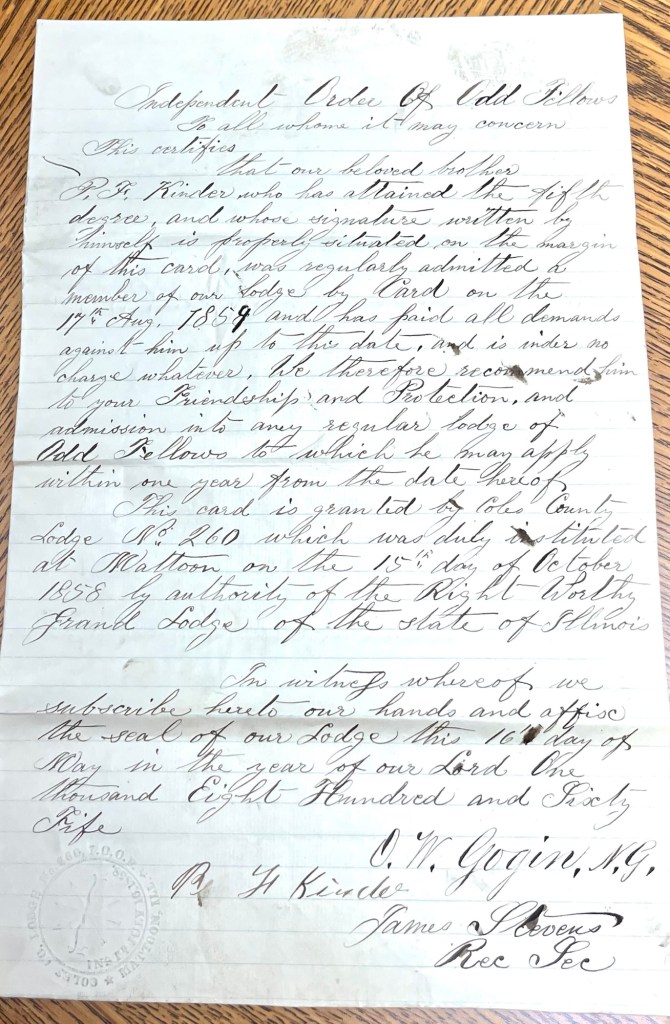 Independent Order Of Odd Fellows
To all whome it may concern
This certifies
that our beloved brother
P. F. Kinder who has attained the fifth
degree, and whose signature written by
himself is properly situated on the margin
of this card, was regularly admitted a
member of our Lodge by Card on the
17th Aug. 1859 and has paid all demands
against him up to this date, and is inder no
charge whatever, We therefore recommend him
to your Friendship and Protection, and
admission into aney regular lodge of
Odd Fellows to which he may apply
within one year from the date hereof
This card is granted by Coles County
Lodge No. 260 which was duly instituted
at Mattoon on the 15th day of October
1858 by authority of the Right Worthy
Grand Lodge of the state of Illinois
In witness whereof we
subscribe hereto our hands and affisc
the seal of our Lodge this 16th day of
May in the year of our Lord One
thousand Eight Hundred and Sixty
Fife
O. W. Gogin, N.G.
P. F Kinder
James Stevens
Rec Sec
COLES CO.